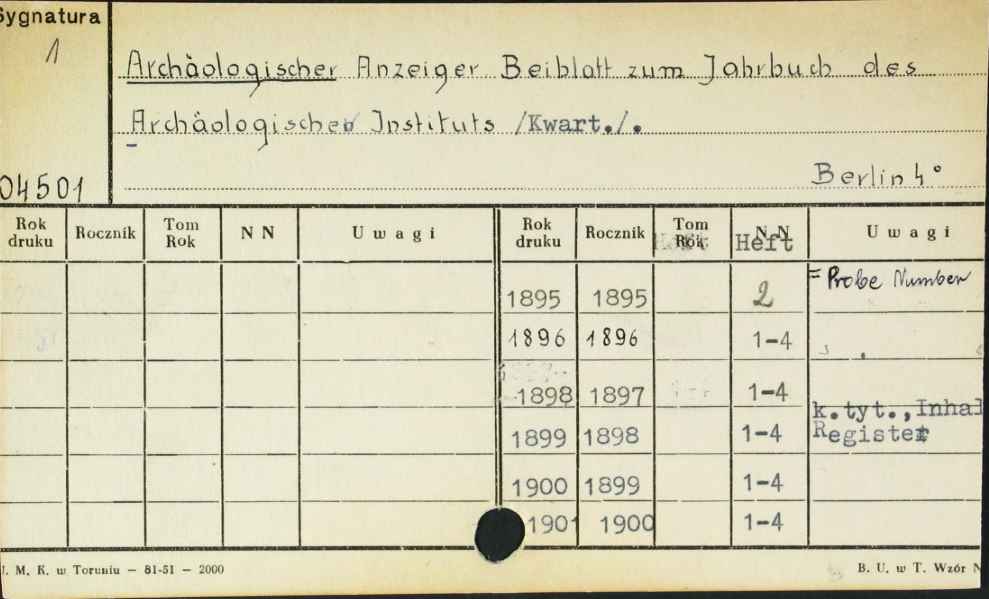 Sygnatura
1
04501
Archäologischer Anzeiger Beiblatt zum Jahrbuch des
Archäologischen Instituts /Kwart./.
Berlin 4°
Rok druku Rocznik Tom Rok N N U w a g i Rok druku Rocznik Tom Rok N N Heft U w a g i
1895 1895 2 = Probe Number
1896 1896 1-4
1898 1897 1-4
k.tyt.,Inhal
1899 1898 1-4 Register
1900 1899 1-4
1901 1900 1-4
J. M. K. w Toruniu — 81-51 — 2000
B. U. w T. Wzór N